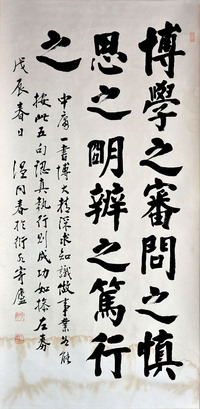 博學之審問之慎
思之明辨之篤行
之
中庸一書博大精深求知識做事業若能
按此五句認真執行則成功如操左券
戊辰春日 温同春於